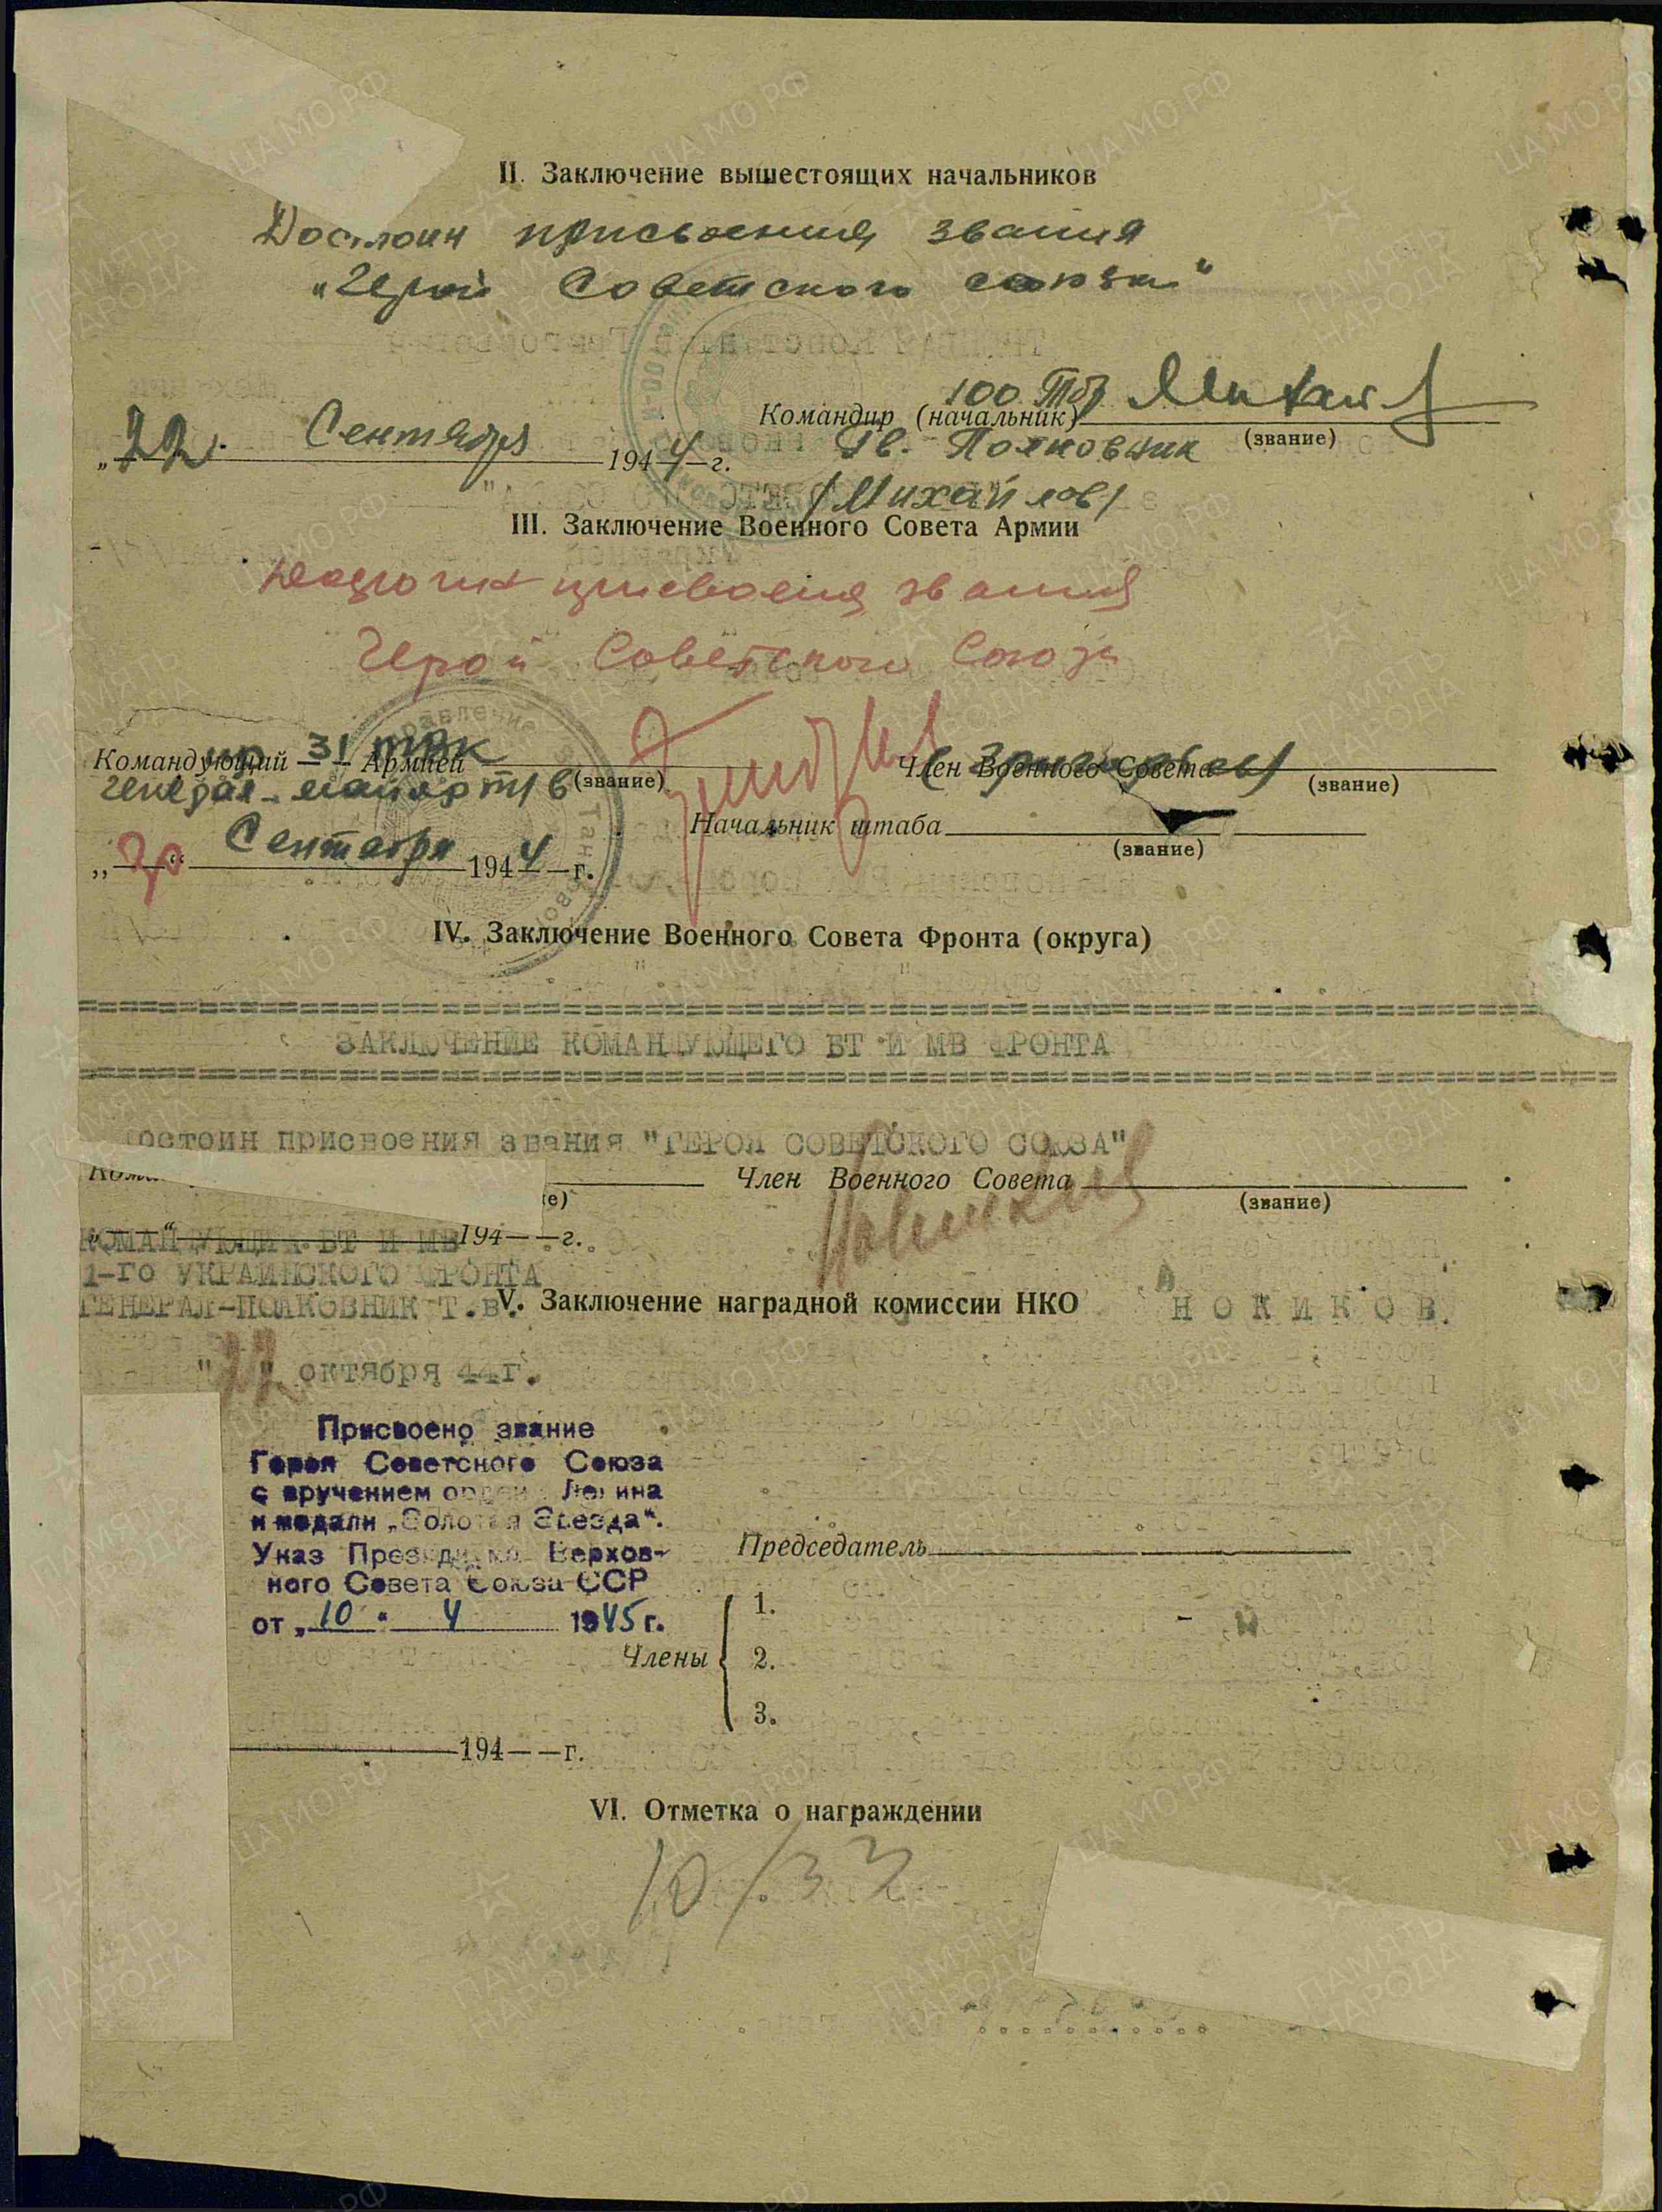 II. Заключение вышестоящих начальников
Достоин присвоения звания
„Герой Советского союза"
100 Тбр
Командир (начальник)
(звание)
„22" Сентября 1944 г.
Гв. Полковник
/Михайлов/
III. Заключение Военного Совета Армии
достоин присвоения звания
Герой Советского Союза
Командующий 31 Армией
(звание)
Генерал-майор т/в
Член Военного Совета
(звание)
Начальник штаба
(звание)
„30" Сентября 1944 г.
IV. Заключение Военного Совета Фронта (округа)
ЗАКЛЮЧЕНИЕ КОМАНДУЮЩЕГО БТ И МВ ФРОНТА
остоин присвоения звания "ГЕРОЯ СОВЕТСКОГО СОЮЗА"
Член Военного Совета
(звание)
194 г.
КОМАНДУЮЩИЙ БТ И МВ
1-го УКРАИНСКОГО ФРОНТА
ГЕНЕРАЛ-ПОЛКОВНИК Т.В.
НОВИКОВ.
V. Заключение наградной комиссии НКО
"22" октября 44г.
Присвоено звание
Героя Советского Союза
с вручением ордена Ленина
и медали „Золотая Звезда".
Указ Президиума Верхов-
ного Совета Союза ССР
от „10" 4 1945 г.
Председатель
Члены
1.
2.
3.
194 г.
VI. Отметка о награждении
10/33